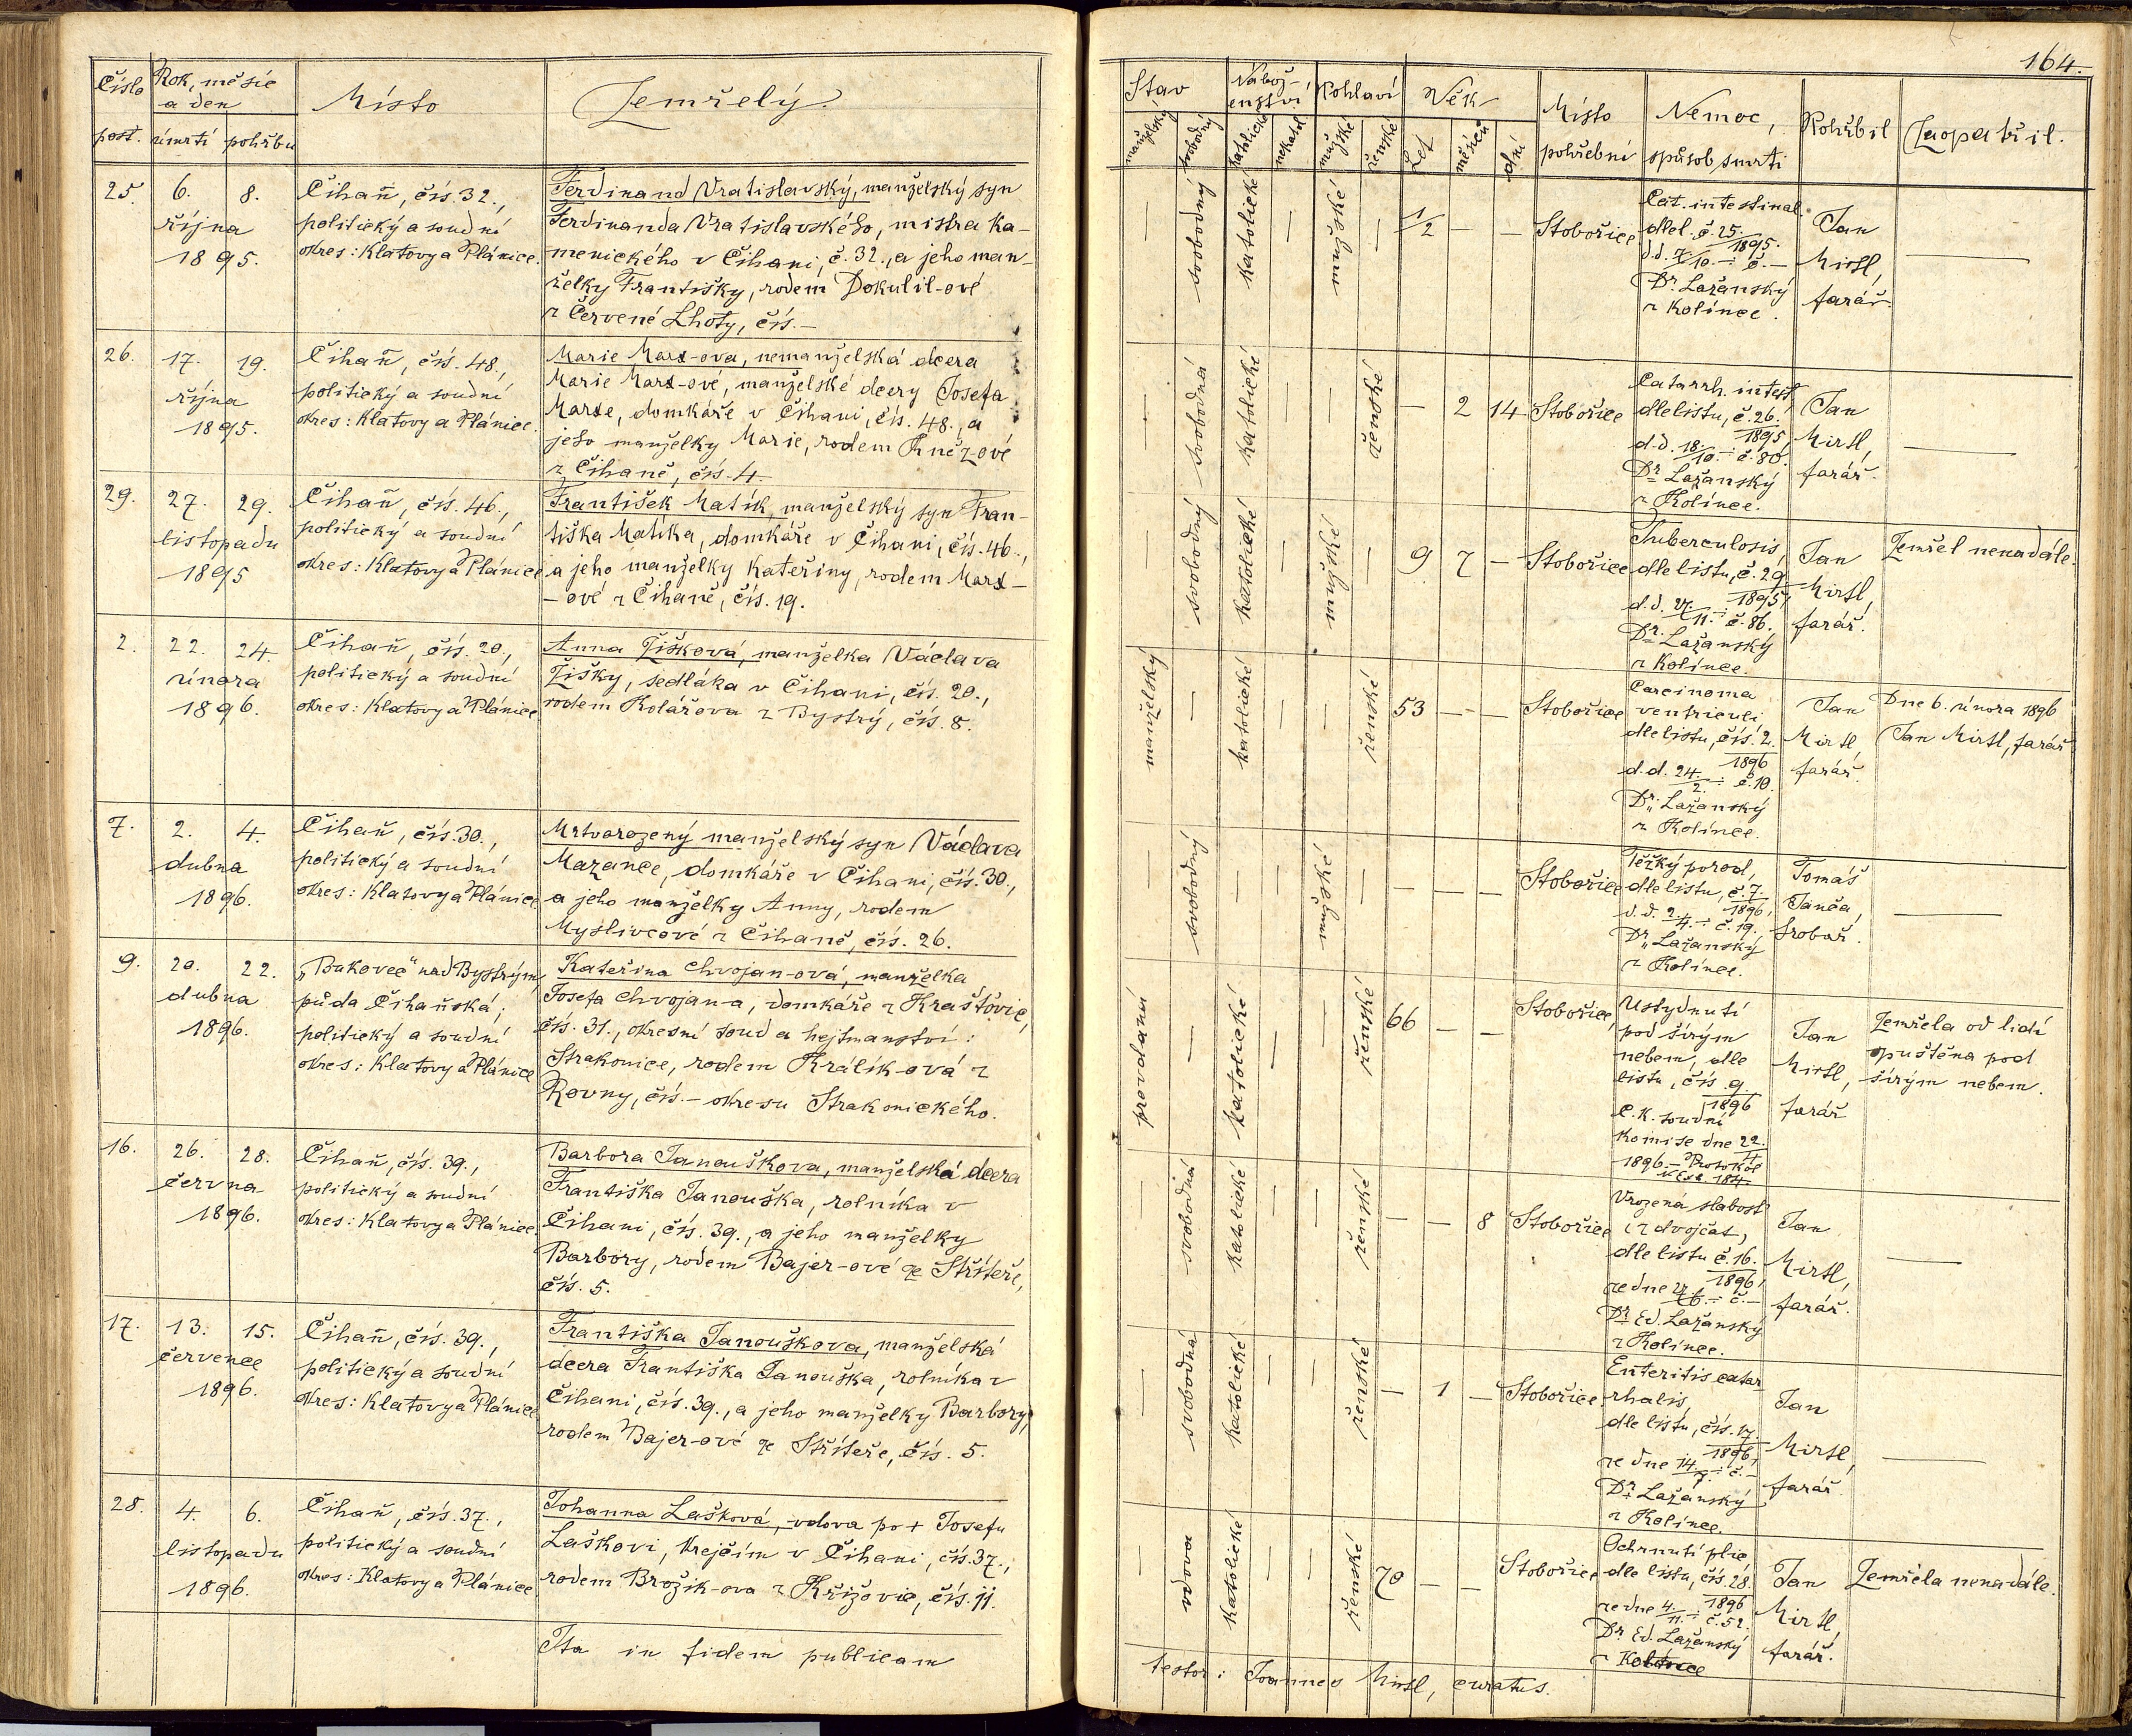 164.
Číslo post.
Rok, měsíc
a den
úmrtí pohřbu
Místo
Zemřelý
Stav
manželský svobodný
Nábož-
enství
katolické nekatol.
Pohlaví
mužské ženské
Věk
Let měsíců dní
Místo
pohřební
Nemoc,
způsob smrti
Pohřbil
Zaopatřil.
25. 6. 8.
října
1895.
Čihaň, čís. 32.,
politický a soudní
okres: Klatovy a Plánice.
Ferdinand Vratislavský, manželský syn
Ferdinanda Vratislavského, mistra ka-
menického v Čihani, č. 32., a jeho man-
želky Františky, rodem Dokulil-ové
z Červené Lhoty, čís. —
— svobodný katolické — mužské — 1/2 — — Stobořice
Cat. intestinal.
dle l. č. 25.
1895.
d.d. 7./10. — : č. —
Dr. Lažanský
z Kolince.
Jan
Mirtl,
farář.
—
26. 17. 19.
října
1895.
Čihaň, čís. 48.,
politický a soudní
okres: Klatovy a Plánice.
Marie Marx-ova, nemanželská dcera
Marie Marx-ové, manželské dcery Josefa
Marxe, domkáře v Čihani, čís. 48., a
jeho manželky Marie, rodem Kněz-ové
z Čihaně, čís. 4.
— svobodná katolické — — ženské — 2 14 Stobořice
Catarrh. intest
dle listu, č. 26.
1895,
d.d. 18./10. — : č. 80.
Dr. Lažanský
z Kolince.
Jan
Mirtl,
farář.
—
29. 27. 29.
listopadu
1895
Čihaň, čís. 46.,
politický a soudní
okres: Klatovy a Plánice
František Matík, manželský syn Fran-
tiška Matíka, domkáře v Čihani, čís. 46.,
a jeho manželky Kateřiny, rodem Marx-
-ové z Čihaně, čís. 19.
— svobodný katolické — mužské — 9 7 — Stobořice
Tuberculosis,
dle listu, č. 29
1895,
d.d. 27./11. — : č. 86.
Dr. Lažanský
z Kolince.
Jan
Mirtl,
farář.
Zemřel nenadále.
2. 22. 24.
února
1896.
Čihaň, čís. 20.,
politický a soudní
okres: Klatovy a Plánice
Anna Žižková, manželka Václava
Žižky, sedláka v Čihani, čís. 20.,
rodem Kolářova z Bystrý, čís. 8.
manželský — katolické — — ženské 53 — — Stobořice
Carcinoma
ventriculi
dle listu, čís. 2.
1896
d.d. 24./2. — : č. 10.
Dr. Lažanský
z Kolince.
Jan
Mirtl,
farář.
Dne 6. února 1896
Jan Mirtl, farář
7. 2. 4.
dubna
1896.
Čihaň, čís. 30.,
politický a soudní
okres: Klatovy a Plánice
Mrtvorozený manželský syn Václava
Mazance, domkáře v Čihani, čís. 30.,
a jeho manželky Anny, rodem
Myslivcové z Čihaně, čís. 26.
— svobodný — — mužské — — — — Stobořice
Těžký porod,
dle listu, č. 7.
1896,
d.d. 2./4. — : č. 19.,
Dr. Lažanský
z Kolince.
Tomáš
Janča,
hrobař.
—
9. 20. 22.
dubna
1896.
„Bukovec" nad Bystrým,
půda Čihaňská;
politický a soudní
okres: Klatovy a Plánice
Kateřina Chvojan-ová, manželka
Josefa Chvojana, domkáře z Kraštovic,
čís. 31., okresní soud a hejtmanství:
Strakonice, rodem Králík-ová z
Rovny, čís. — okresu Strakonického.
provdaná — katolické — — ženské 66 — — Stobořice
Ustydnutí
pod širým
nebem, dle
listu, čís. 9.
1896
C. k. soudní
komise dne 22.
1896. — Protokol
Jan
Mirtl,
farář
Zemřela od lidí
opuštěna pod
širým nebem.
16. 26. 28.
června
1896.
Čihaň, čís. 39.,
politický a soudní
okres: Klatovy a Plánice.
Barbora Janouškova, manželská dcera
Františka Janouška, rolníka v
Čihani, čís. 39., a jeho manželky
Barbory, rodem Bajer-ové ze Střítěře,
čís. 5.
— svobodná katolické — — ženské — — 8 Stobořice
Vrozená slabost
(z dvojčat,
dle listu č. 16.
1896,
ze dne 27./6. — : č. —
Dr. Ed. Lažanský
z Kolince.
Jan
Mirtl,
farář.
—
17. 13. 15.
července
1896.
Čihaň, čís. 39.,
politický a soudní
okres: Klatovy a Plánice
Františka Janouškova, manželská
dcera Františka Janouška, rolníka v
Čihani, čís. 39., a jeho manželky Barbory,
rodem Bajer-ové ze Střítěře, čís. 5.
— svobodná katolické — — ženské — 1 — Stobořice
Enteritis catar-
rhalis,
dle listu, čís. 17.
1896,
ze dne 14./7. — : č. —
Dr. Lažanský
z Kolince.
Jan
Mirtl,
farář.
—
28. 4. 6.
listopadu
1896.
Čihaň, čís. 37.,
politický a soudní
okres: Klatovy a Plánice
Johanna Lašková, vdova po + Josefu
Laškovi, krejčím v Čihani, čís. 37.,
rodem Brožik-ova z Křižovic, čís. 11.
— vdova katolické — — ženské 70 — — Stobořice
Ochrnutí plic,
dle listu, čís. 28.
1896
ze dne 4./11. — : č. 52.
Dr. Ed. Lažanský
z Kolince
Jan
Mirtl,
farář.
Zemřela nenadále.
Ita in fidem publicam
testor: Joannes Mirtl, curatus.